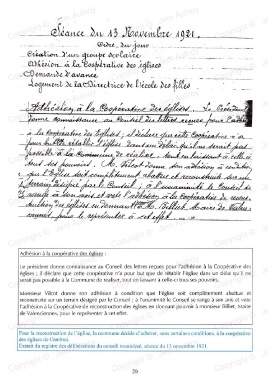 Séance du 13 Novembre 1921.
Ordre du jour
Création d'un groupe scolaire
Adhésion à la Coopérative des églises
Demande d'avance
Logement de la Directrice de l'école des filles
Adhésion à la Coopérative des églises. Le Président
donne connaissance au Conseil des lettres reçues pour l'adhésion
à la Coopérative des Eglises ; il déclare que cette Coopérative n'a
pour but que de rétablir l'église dans un délai qu'il ne serait pas
possible à la Commune de réaliser, tout en laissant à celle-ci
tous ses pouvoirs. M. Vilcot donne son adhésion à condition
que l'Eglise soit complètement abattue et reconstruite sur un
terrain désigné par le Conseil ; à l'unanimité le Conseil se
range à son avis et vote l'adhésion à la Coopérative de
des églises en donnant à M. Billiet, Maire de
pour le représenter à cet effet
Adhésion à la coopérative des églises :
Le président donne connaissance au Conseil des lettres reçues pour l'adhésion à la Coopérative des
églises ; il déclare que cette coopérative n'a pour but que de rétablir l'église dans un délai qu'il ne
serait pas possible à la Commune de réaliser, tout en laissant à celle-ci tous ses pouvoirs.
Monsieur Vilcot donne son adhésion à condition que l'église soit complètement abattue et
reconstruite sur un terrain désigné par le Conseil ; à l'unanimité le Conseil se range à son avis et vote
l'adhésion à la Coopérative de reconstruction des églises en donnant pouvoir à monsieur Billiet, Maire
de Valenciennes, pour le représenter à cet effet.
Pour la reconstruction de l'église, la commune décide d'adhérer, sous certaines conditions, à la coopérative
des églises de Cambrai.
Extrait du registre des délibérations du conseil municipal, séance du 13 novembre 1921.
29